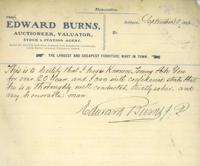 Memorandum.
FROM
EDWARD BURNS,
AUCTIONEER, VALUATOR,
STOCK & STATION AGENT.
Address
September
THE LARGEST AND CHEAPEST FURNITURE MART IN TOWN.
This is to Certify that I have Known Tommy Ah You
for over 20 Years and I can with confidence state that
he is a thoroughly well conducted, sober and
very honorable man
Edward Burns J.P.